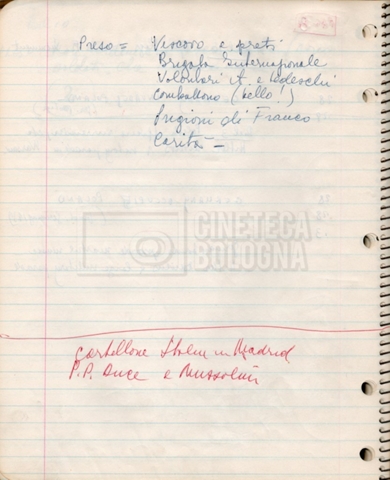 Preso = Vescovo e preti
Brigata Internazionale
Volontari it. e tedeschi
combattono (bello!)
Prigioni di Franco
Carità =
CINETECA
BOLOGNA
cartellone in Madrid
P.P. Duce e Mussolini